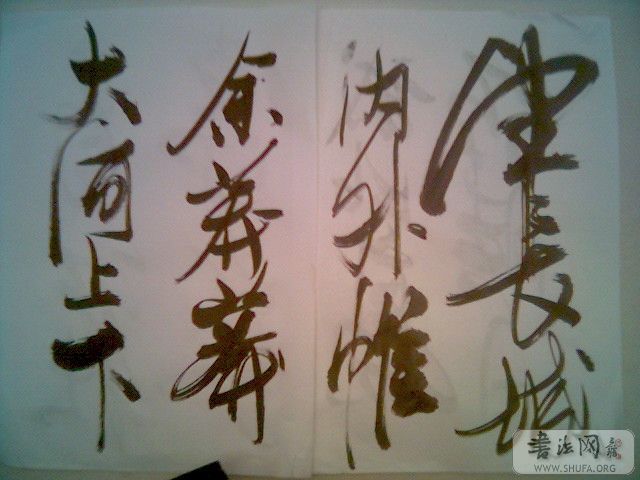 望长城
内外惟
余莽莽
大河上下
書法网
WWW.SHUFA.ORG